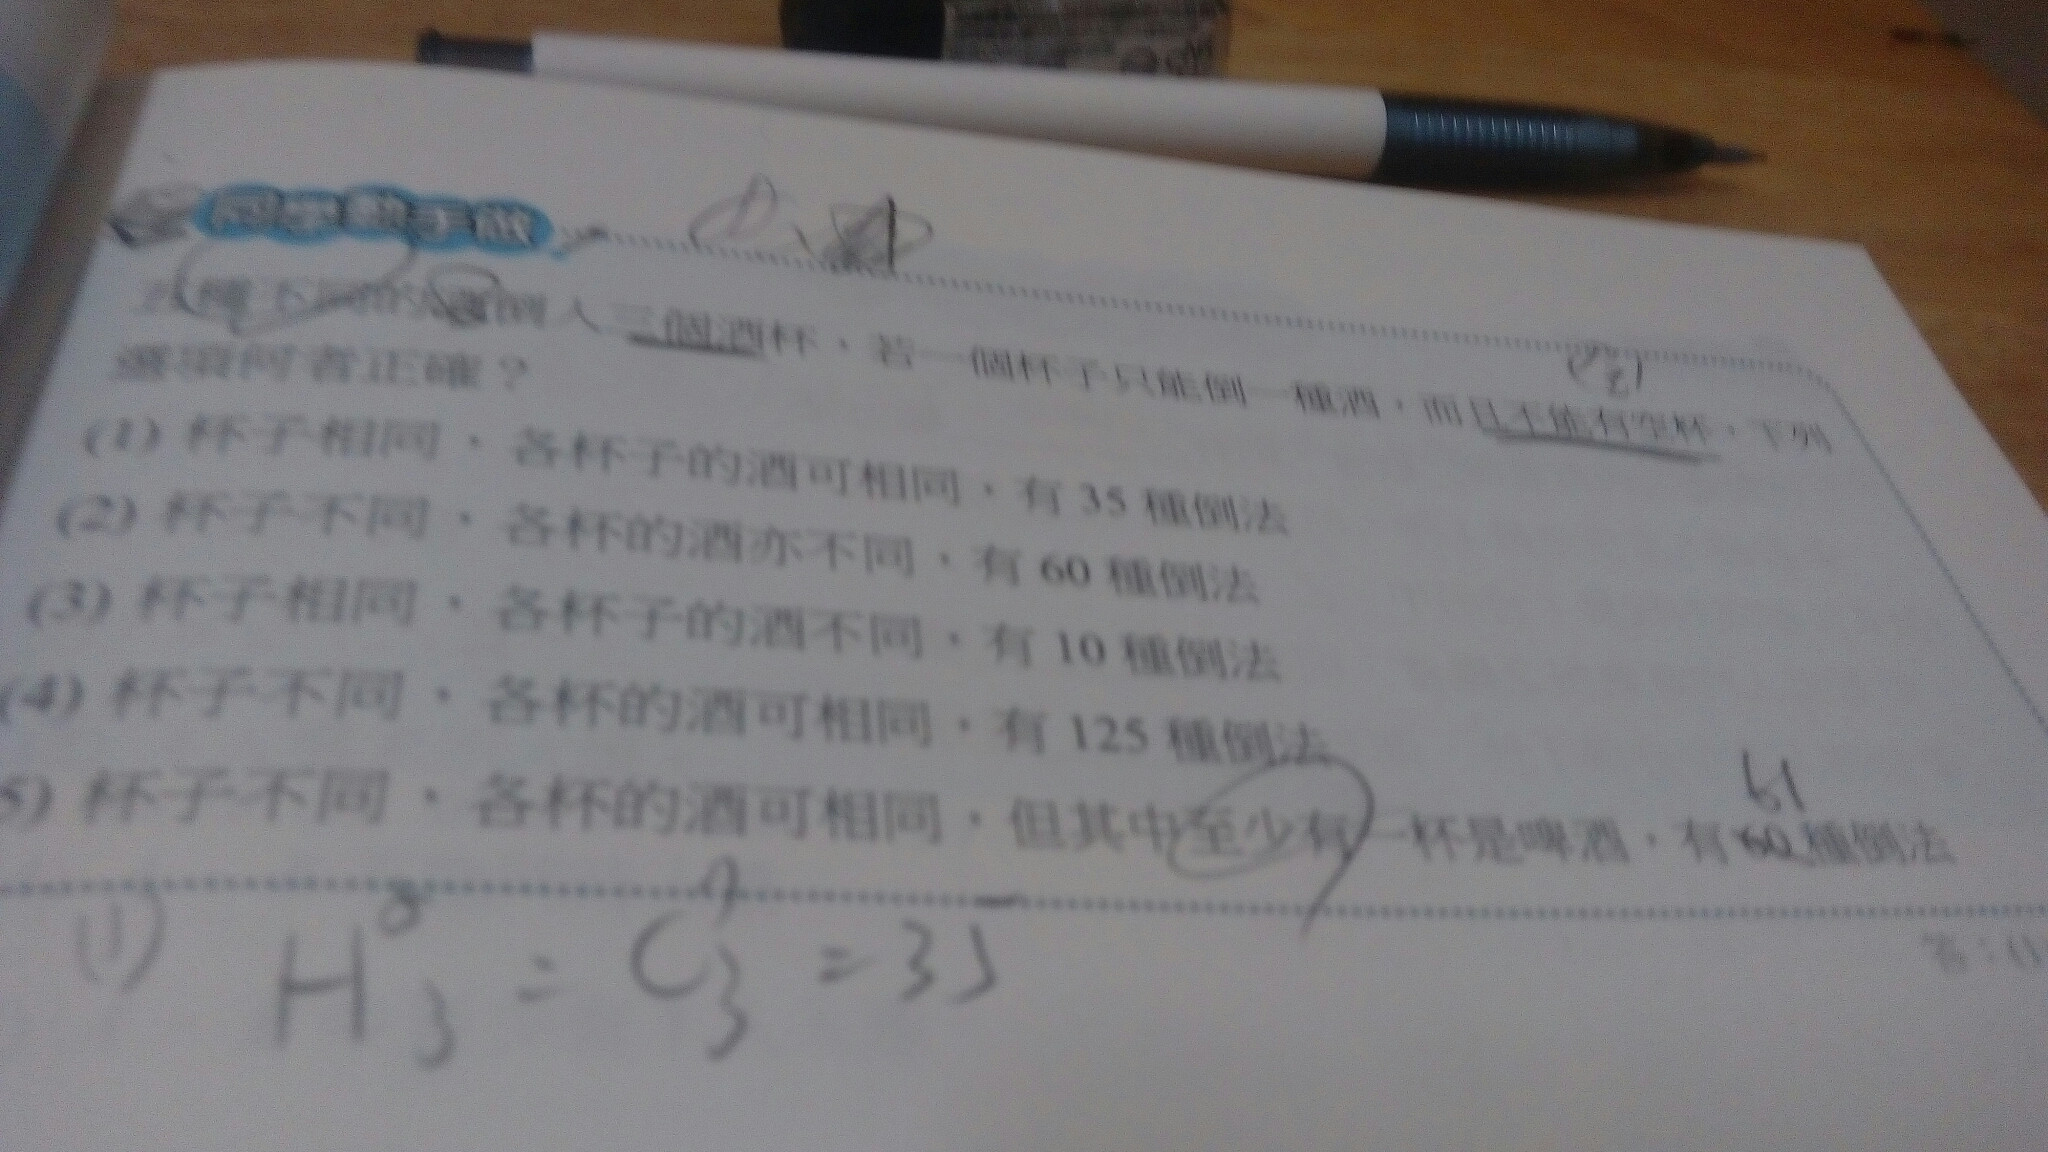 同學動手做
五種不同的酒倒入三個酒杯，若一個杯子只能倒一種酒，而且不能有空杯，下列
選項何者正確？
(1) 杯子相同，各杯子的酒可相同，有 35 種倒法
(2) 杯子不同，各杯的酒亦不同，有 60 種倒法
(3) 杯子相同，各杯子的酒不同，有 10 種倒法
(4) 杯子不同，各杯的酒可相同，有 125 種倒法
5) 杯子不同，各杯的酒可相同，但其中至少有一杯是啤酒，有 60 種倒法
61
答：(1
(1) H 3 = C 7 3 = 35